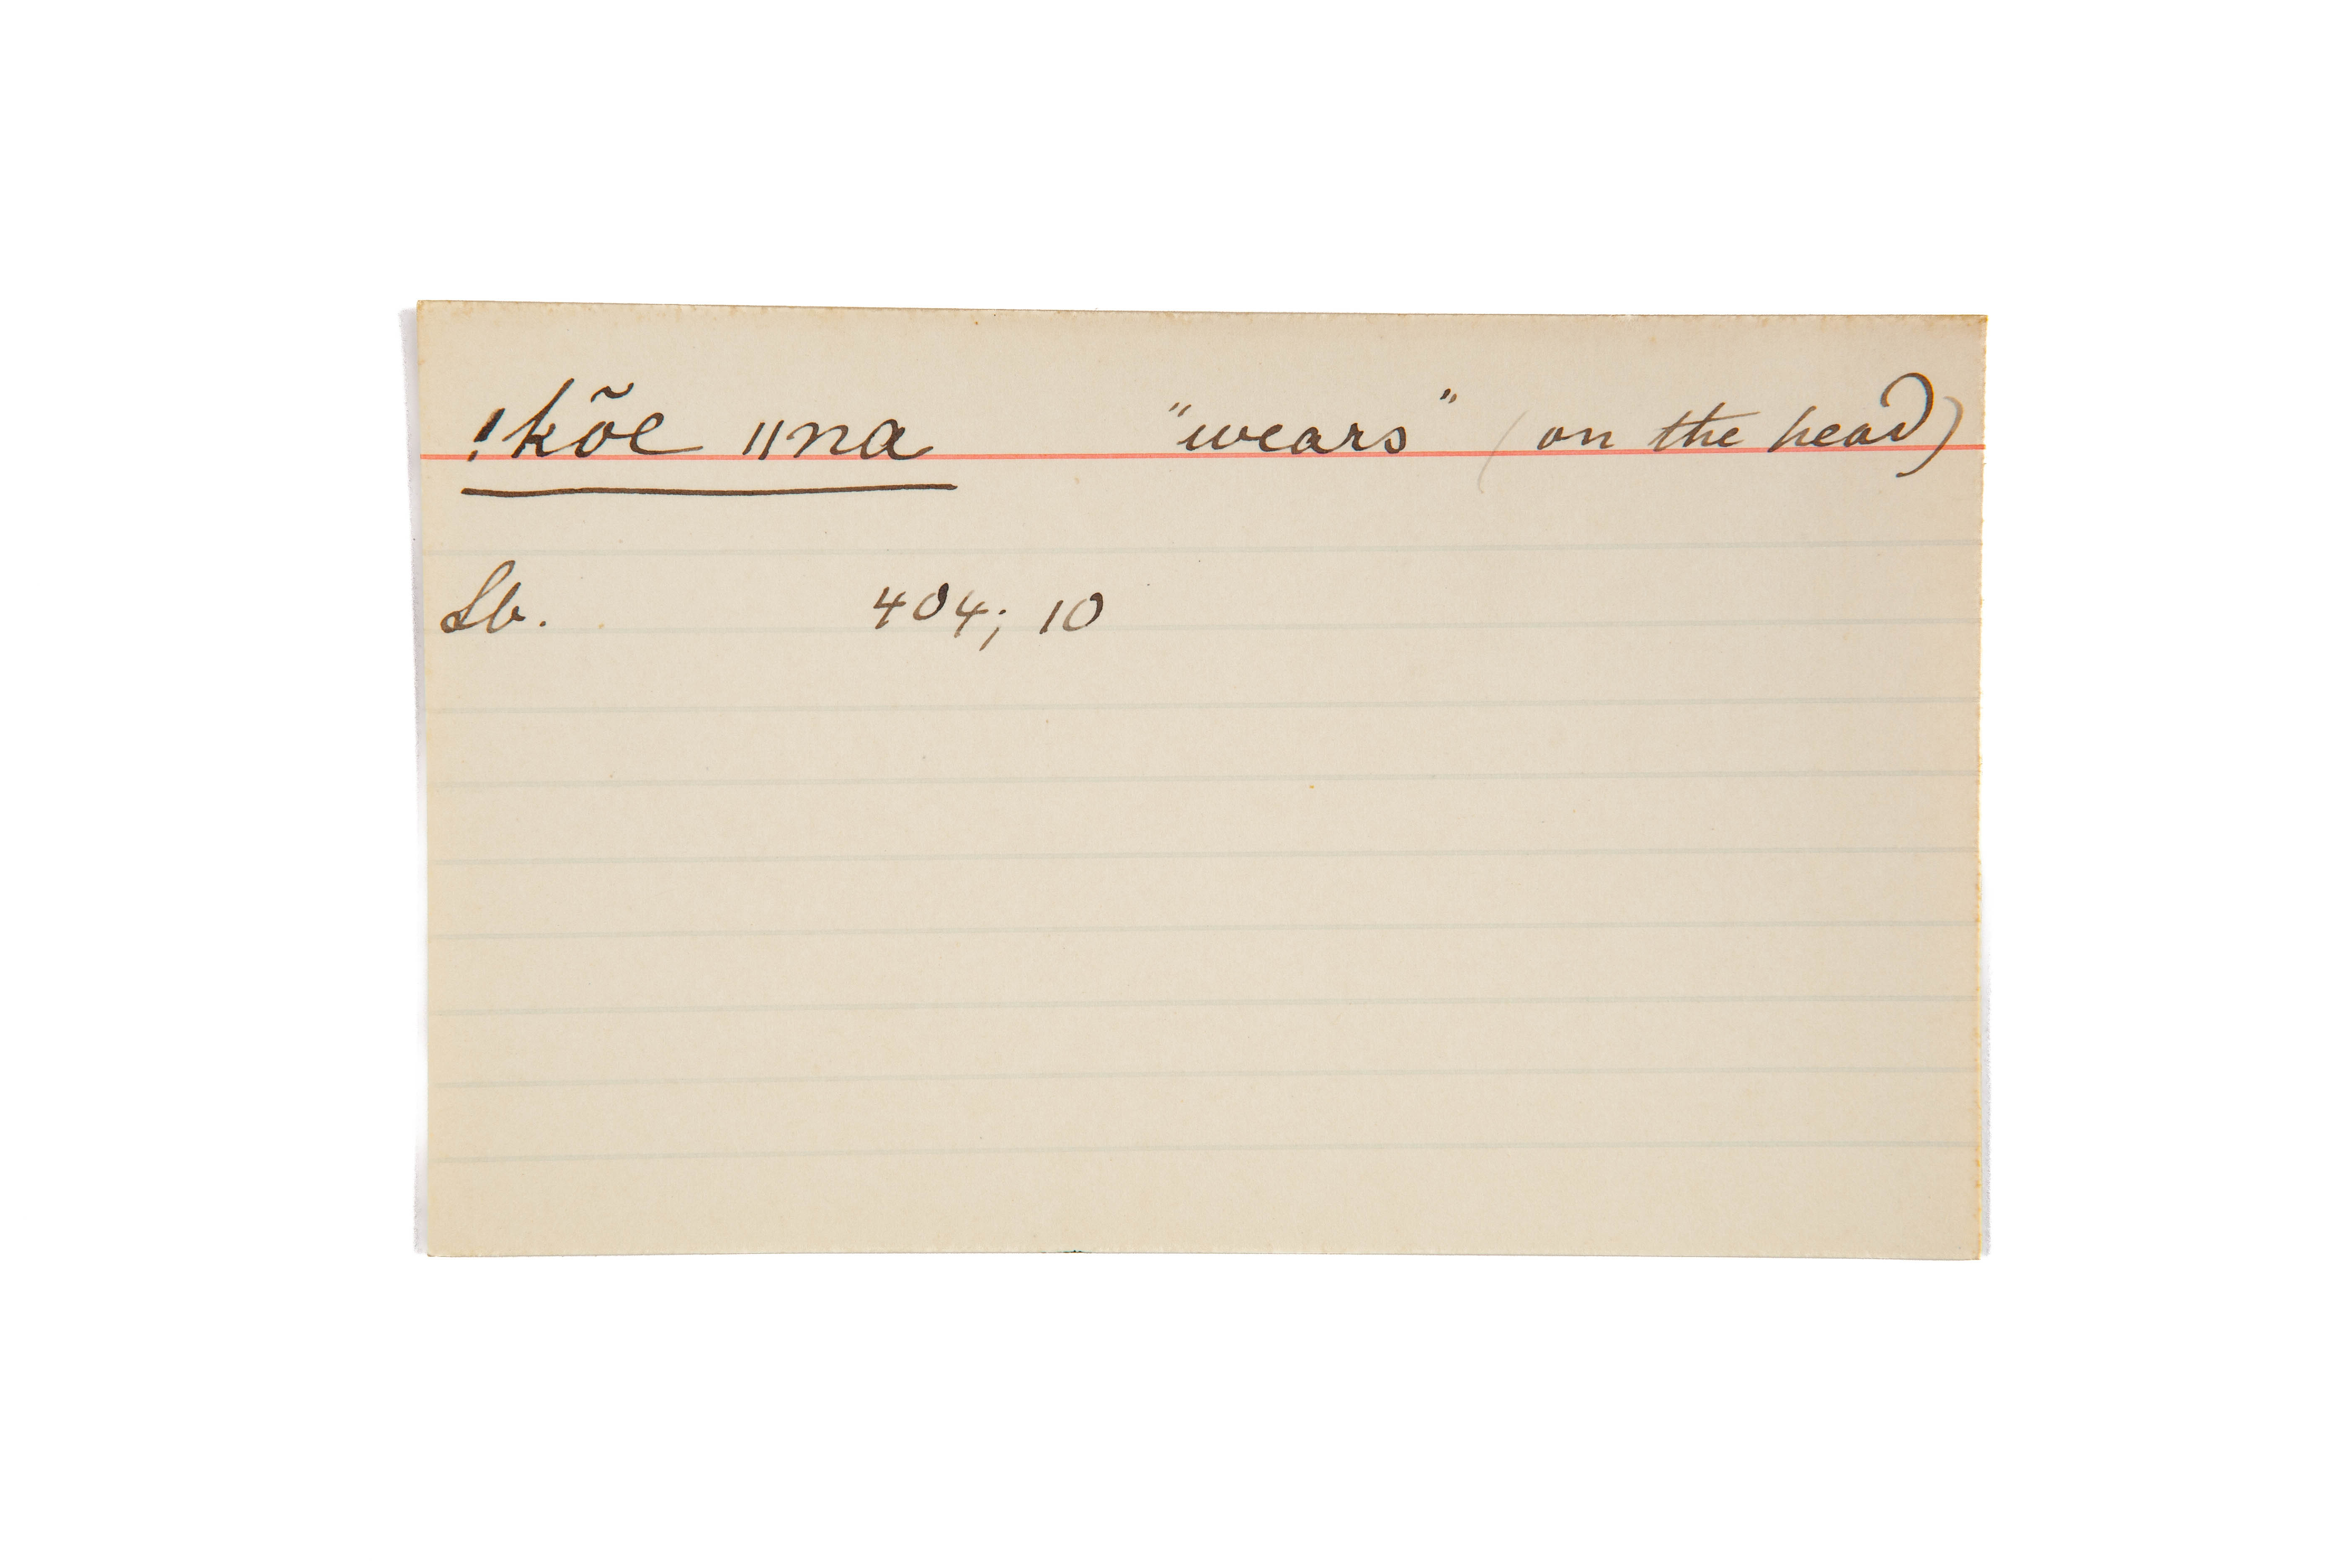 !kõe ǁna "wears" (on the head)
Lb. 404; 10